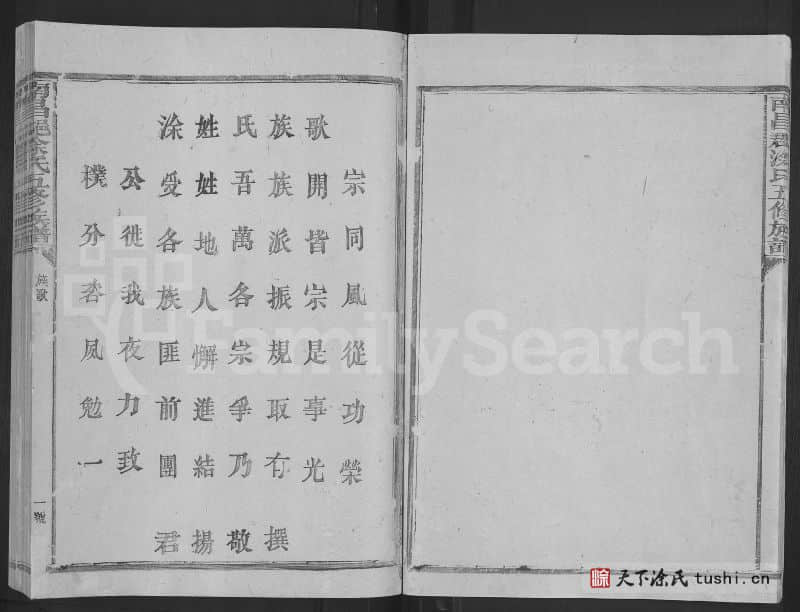 南昌郡涂氏五修族譜
宗同風從功榮
歌開皆宗是事光
族族派振規取有撰
氏吾萬各崇爭乃敬
姓姓地人懈進結揚
涂受各族匪前團君
公徙我夜力致
樸分夙勉一
南昌郡涂氏五修族譜
族歌
一號
FamilySearch
涂 天下涂氏 tushi.cn